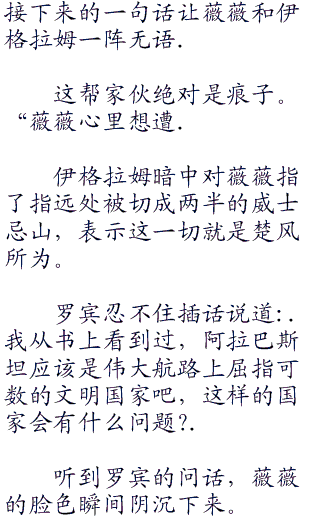 接下来的一句话让薇薇和伊
格拉姆一阵无语.
这帮家伙绝对是痕子。
“薇薇心里想遭.
伊格拉姆暗中对薇薇指
了指远处被切成两半的威士
忌山，表示这一切就是楚风
所为。
罗宾忍不住插话说道:.
我从书上看到过，阿拉巴斯
坦应该是伟大航路上屈指可
数的文明国家吧，这样的国
家会有什么问题?.
听到罗宾的问话，薇薇
的脸色瞬间阴沉下来。